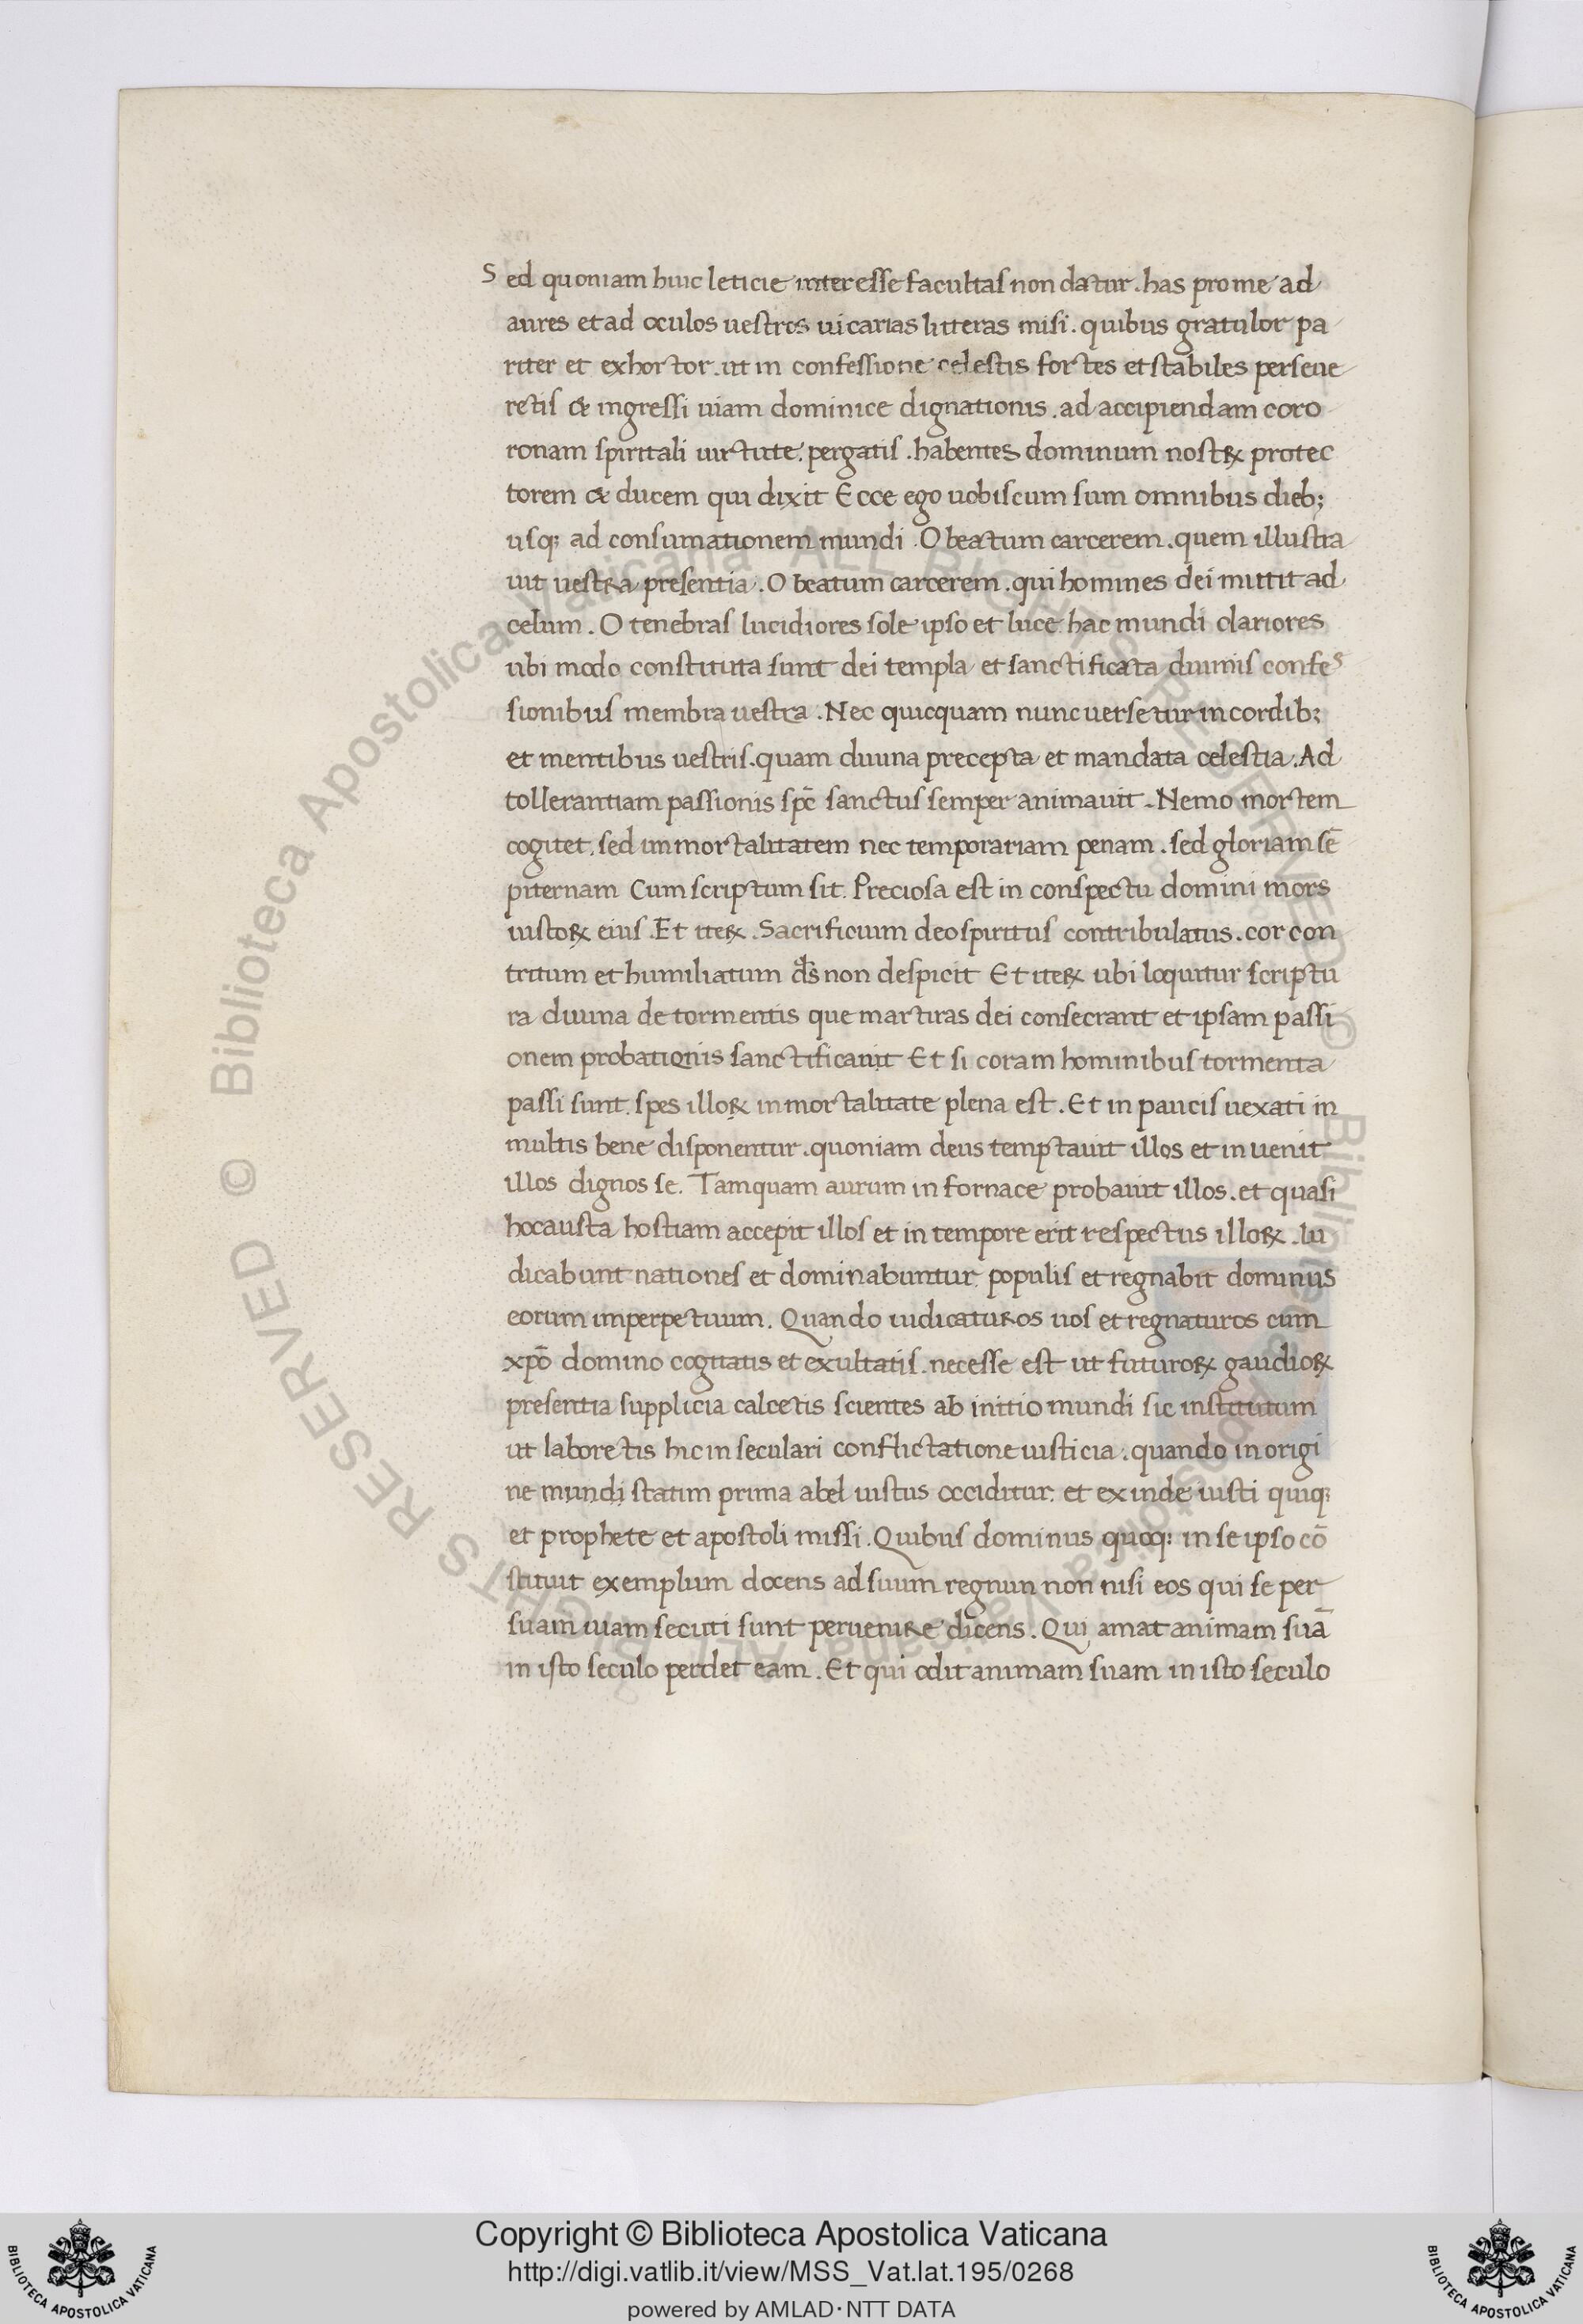 Sed quoniam huic leticie interesse facultas non datur. has pro me ad
aures et ad oculos uestros uicarias litteras misi. quibus gratulor pa
riter et exhortor. ut in confessione celestis fortes et stabiles perseue
retis & ingressi uiam dominice dignationis. ad accipiendam coro
ronam spiritali uirtute. pergatis. habentes dominum nostrꝝ protec
torem & ducem qui dixit Ecce ego uobiscum sum omnibus dieb;
usqꝫ ad consumationem mundi. O beatum carcerem. quem illustra
uit uestra presentia. O beatum carcerem. qui homines dei mittit ad
celum. O tenebras lucidiores sole ipso et luce hac mundi clariores
ubi modo constituta sunt dei templa et sanctificata diuinis confes
sionibus membra uestra. Nec quicquam nunc uersetur in cordib;
et mentibus uestris. quam diuina precepta et mandata celestia. Ad
tollerantiam passionis sp̄c sanctus semper animauit. Nemo mortem
cogitet. sed inmortalitatem nec temporariam penam. sed gloriam sē
piternam Cum scriptum sit. Preciosa est in conspectu domini mors
iustoꝝ eius. Et iteꝝ. Sacrificium deo spiritus contribulatus. cor con
tritum et humiliatum d̄s non despicit Et iteꝝ ubi loquitur scriptu
ra diuina de tormentis que martiras dei consecrant et ipsam passi
onem probationis sanctificant Et si coram hominibus tormenta
passi sunt. spes illoꝝ inmortalitate plena est. Et in paucis uexati in
multis bene disponentur. quoniam deus temptauit illos et inuenit
illos dignos se. Tamquam aurum in fornace probauit illos. et quasi
hocausta hostiam accepit illos et in tempore erit respectus illoꝝ. Iu
dicabunt nationes et dominabuntur populis et regnabit dominus
eorum imperpetuum. Quando iudicaturos uos et regnaturos cum
xp̄o domino cogitatis et exultatis. necesse est ut futuroꝝ gaudioꝝ
presentia supplicia calcetis scientes ab initio mundi sic institutum
ut laboretis hic in seculari conflictatione iusticia. quando in origi
ne mundi statim prima abel iustus occiditur. et exinde iusti quiqꝫ
et prophete et apostoli missi. Quibus dominus quoqꝫ in se ipso cō
stituit exemplum docens ad suum regnun non nisi eos qui se per
suam uiam secuti sunt peruenire dicens. Qui amat animam suā
in isto seculo perdet eam. Et qui odit animam suam in isto seculo
Copyright © Biblioteca Apostolica Vaticana
http://digi.vatlib.it/view/MSS_Vat.lat.195/0268
powered by AMLAD·NTT DATA